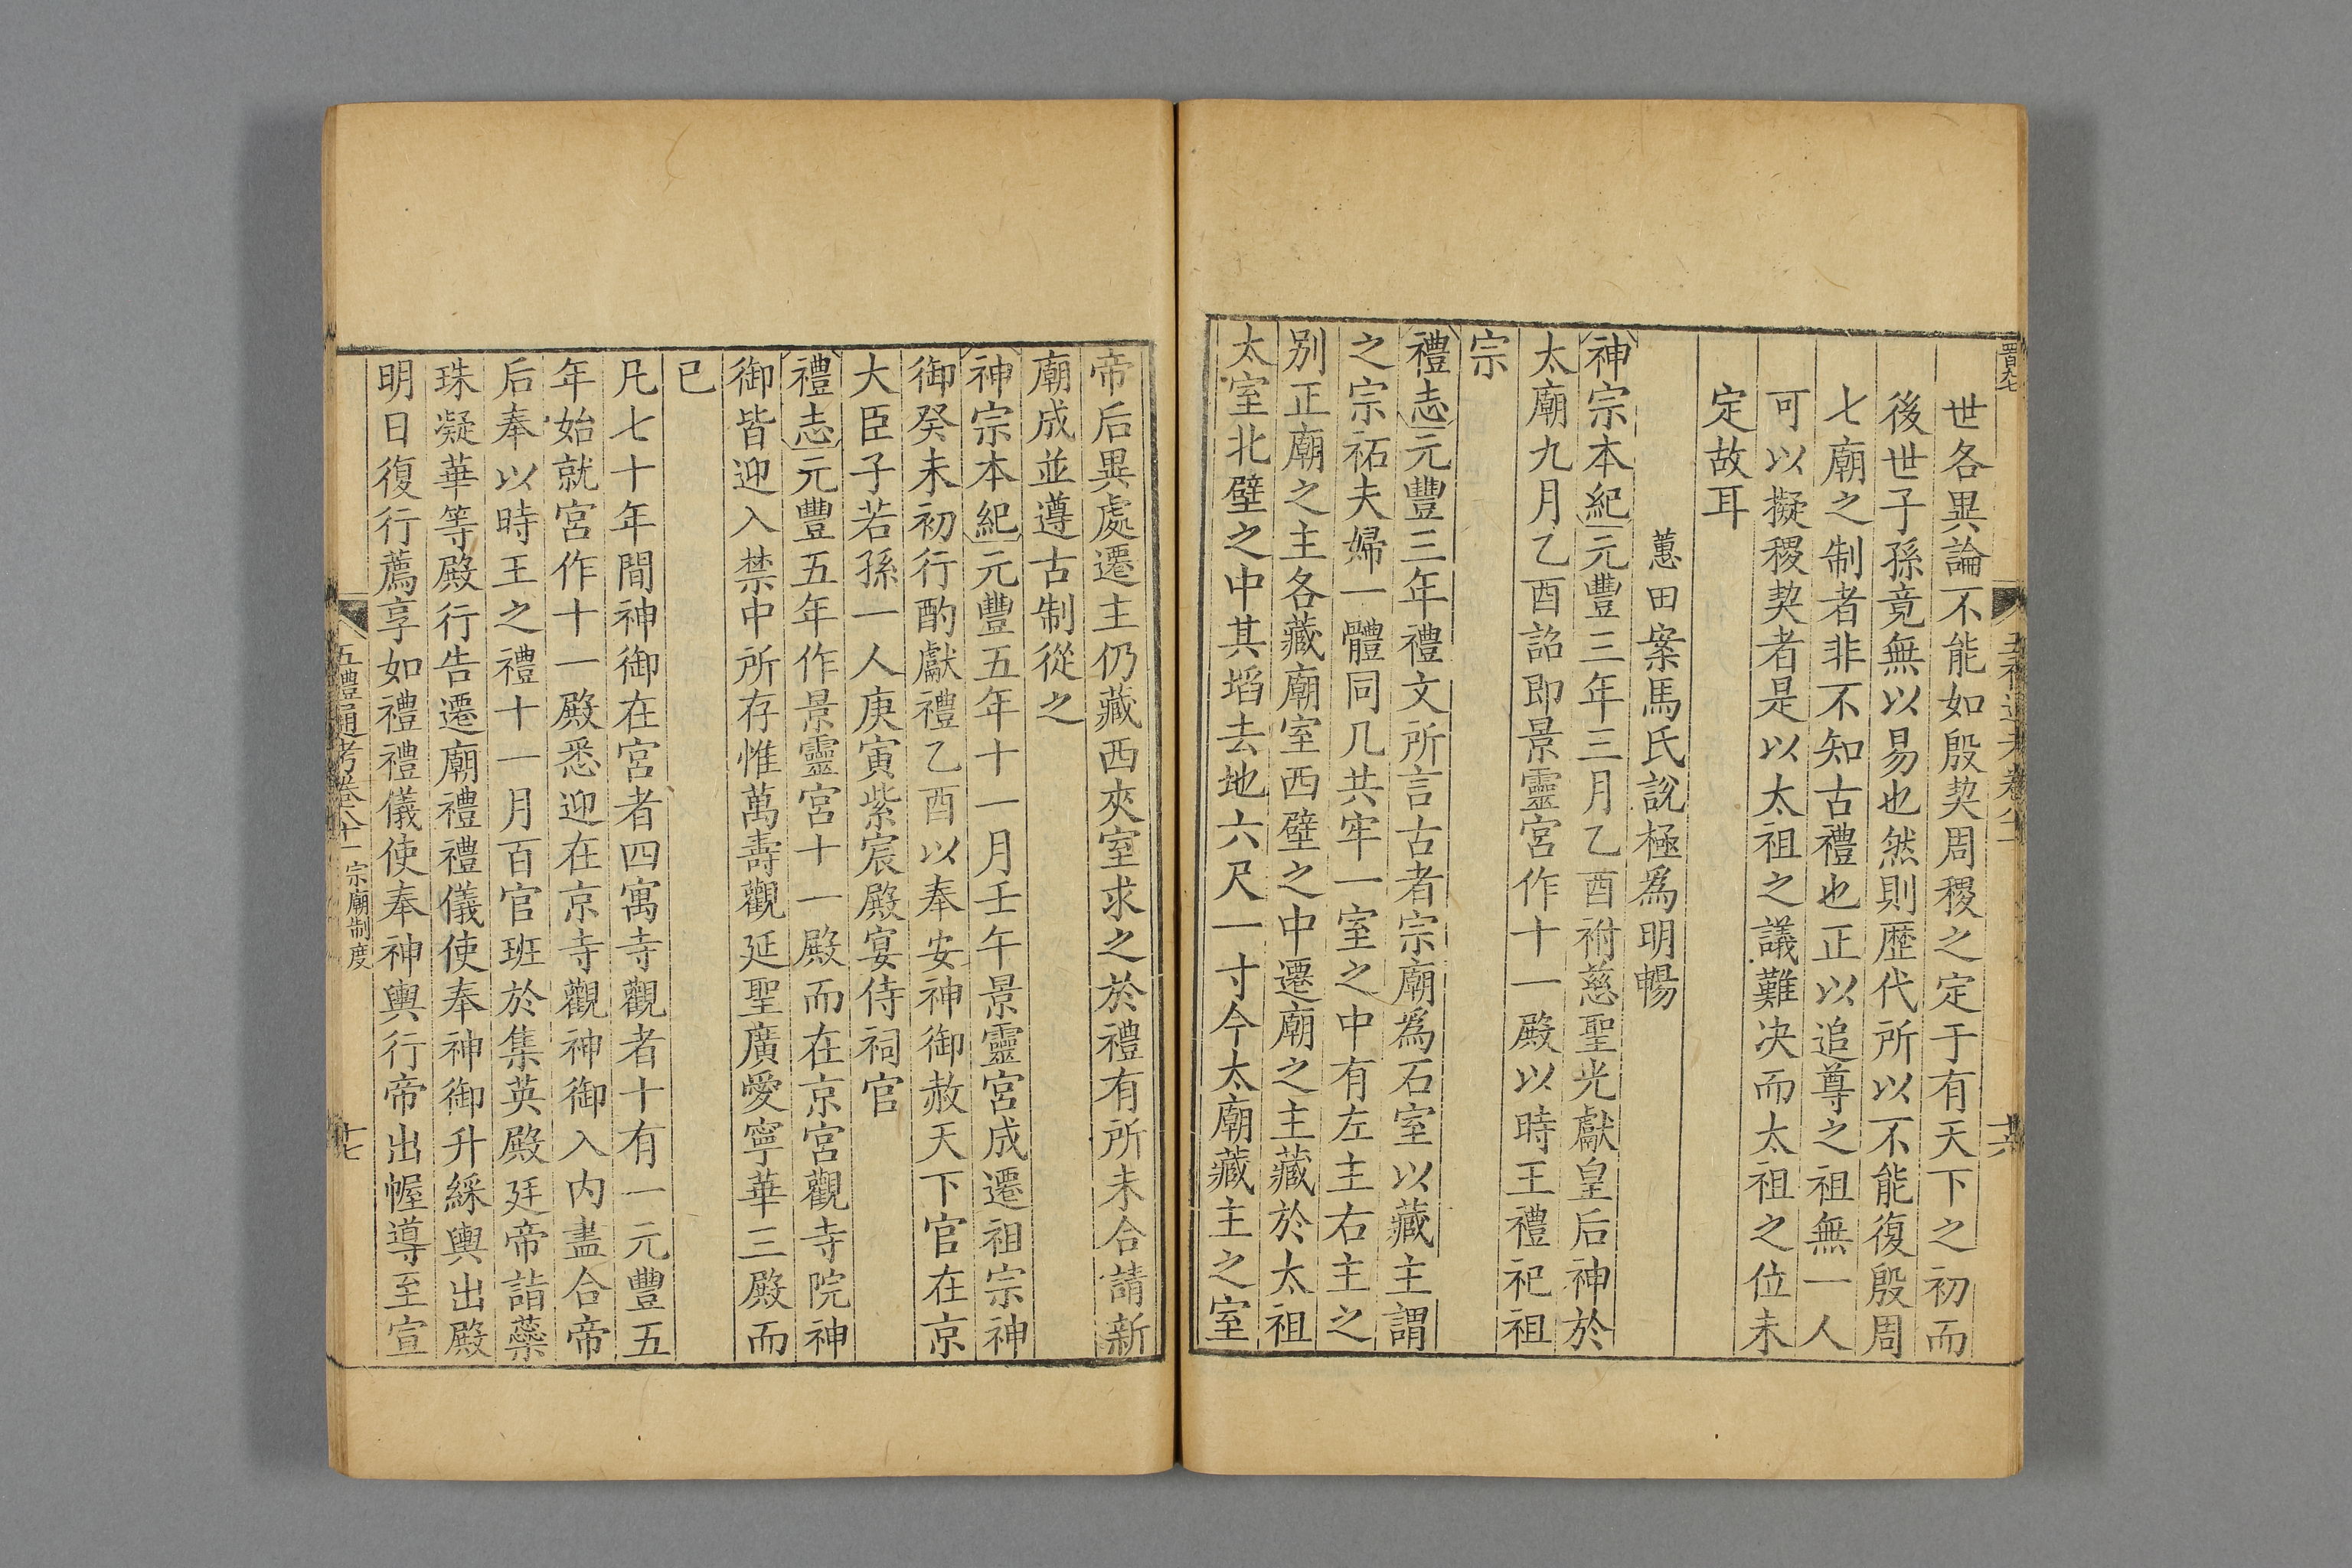 世各異論不能如殷契周稷之定于有天下之初而
後世子孫竟無以易也然則歷代所以不能復殷周
七廟之制者非不知古禮也正以追尊之祖無一人
可以擬稷契者是以太祖之議難决而太祖之位未
定故耳
蕙田案馬氏說極爲明暢
神宗本紀元豐三年三月乙酉祔慈聖光獻皇后神於
太廟九月乙酉詔即景靈宮作十一殿以時王禮祀祖
宗
禮志元豐三年禮文所言古者宗廟爲石室以藏主謂
之宗祏夫婦一體同几共牢一室之中有左主右主之
別正廟之主各藏廟室西壁之中遷廟之主藏於太祖
太室北壁之中其埳去地六尺一寸今太廟藏主之室
帝后異處遷主仍藏西夾室求之於禮有所未合請新
廟成並遵古制從之
神宗本紀元豐五年十一月壬午景靈宮成遷祖宗神
御癸未初行酌獻禮乙酉以奉安神御赦天下官在京
大臣子若孫一人庚寅紫宸殿宴侍祠官
禮志元豐五年作景靈宮十一殿而在京宮觀寺院神
御皆迎入禁中所存惟萬壽觀延聖廣愛寧華三殿而
已
凡七十年間神御在宮者四寓寺觀者十有一元豐五
年始就宮作十一殿悉迎在京寺觀神御入内盡合帝
后奉以時王之禮十一月百官班於集英殿廷帝詣蘂
珠凝華等殿行告遷廟禮禮儀使奉神御升綵輿出殿
明日復行薦享如禮禮儀使奉神輿行帝出幄導至宣
五禮通考卷八十一 宗廟制度
十七